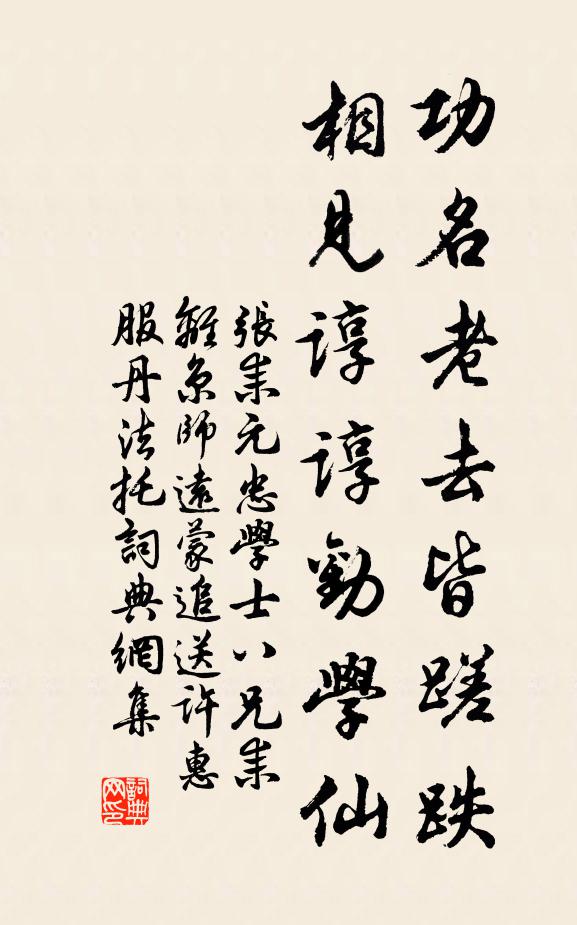 功名老去皆蹉跌
相見諄諄勸學仙
張耒元忠學士八兄耒
離京師遠蒙追送許惠
服丹法托詞典網集
詞典网印